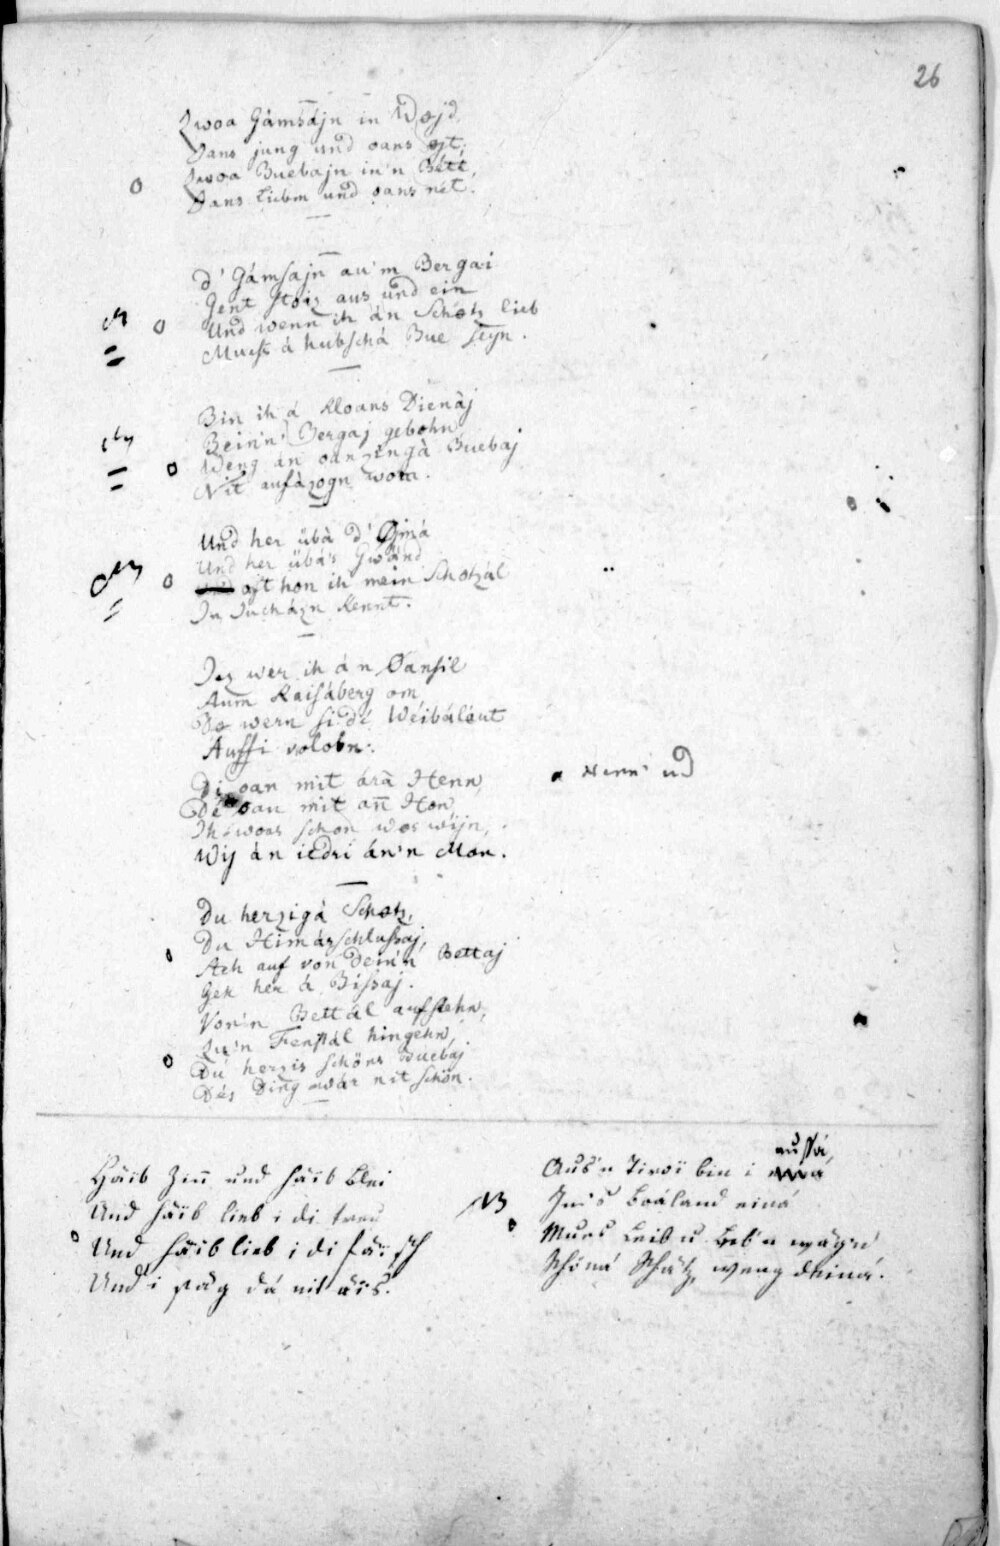 26
Zwoa Gámsájn in Wojd,
Oans jung und oans ojt,
Zwoa Buebajn in'n Bétt,
Oans liebm und oans nét.
d' Gámsajn au'm Bergai
Gent stoiz aus und ein
Und wenn ih án Schotz lieb
Muess á hubschá Bue seyn.
Bin ih á kloans Dienàj
Bein'n Bergaj gebohn
Weng án oanzingà Buebaj
Nit aufázogn worn.
Und her übà d' Ojmá
Und her übá's Gwánd
oft hon ih mein Schotzál
In Jucházn kennt.
Jez wer ih án Oansil
Aum Kaisáberg om
Do wern si dé Weibáleut
Auffi volobn.
Di oan mit árà Henn,
Dé oan mit an̄ Hon,
Ih woas schon wos wijn,
Wij án iedri án'n Mon.
Henn' ud
Du herzigá Schotz,
Du Himáschlussaj,
Ach auf von dein'n Bettaj
Geh her á Bissaj.
Von'n Bettál aufstehn,
Zu'n Fenstál hingehn,
Du herzis schöns Buebaj
Dés Ding wár nit schön.
Háib Zin̄ und háib Blei
Und háib lieb i di treu
Und háib lieb i di fäisch
Und i ság dá nit áis.
Aus'n Tiroi bin i aussá,
In's Boáland einá
Mues Leib u Leb'n wág'n
Schöná Schátz, weng deiná.